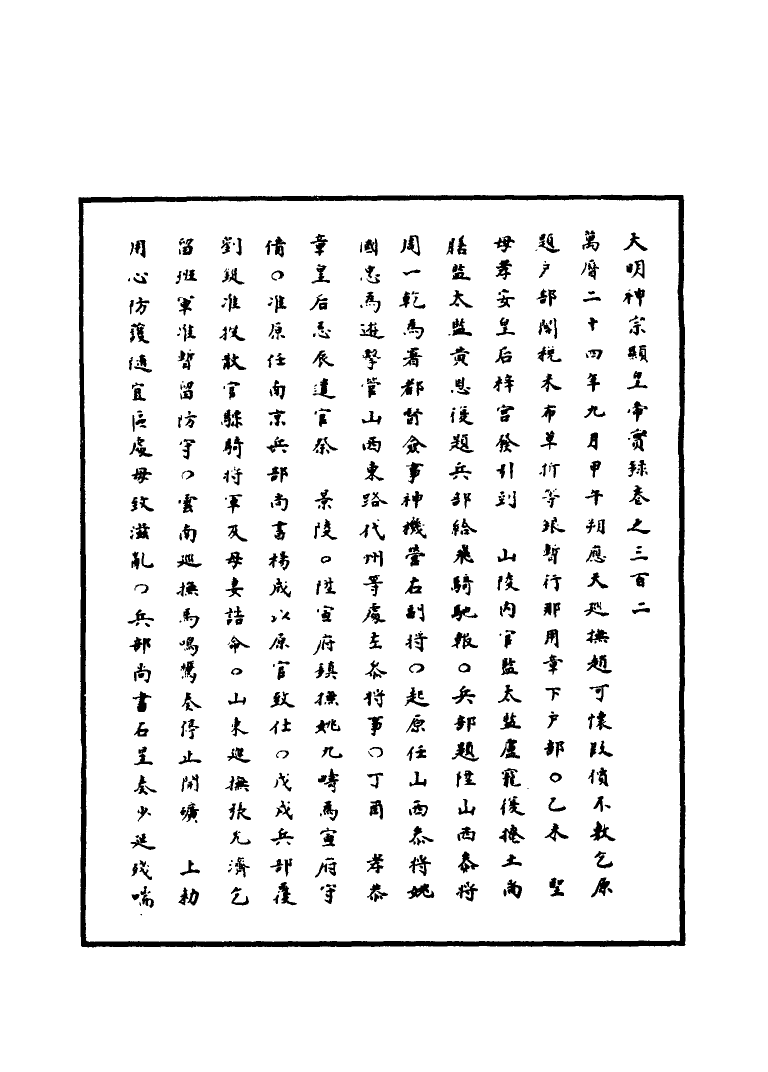 大明神宗顯皇帝實錄卷之三百二
萬曆二十四年九月甲午朔應天巡撫趙可懷改價不敷乞原
題戶部閘稅米布草折等銀暫行那用章下戶部○乙未　聖
母孝安皇后梓宮發引到　山陵內官監太監盧寵後捲土尚
膳監太監黃恩復題兵部給飛騎馳報○兵部題陞山西叅將
周一乾為署都督僉事神機營右副將○起原任山西叅將姚
國忠為遊擊管山西東路代州等處主叅將事○丁酉　孝恭
章皇后忌辰遣官祭　景陵○陞宣府鎮撫姚九疇為宣府守
備○准原任南京兵部尚書楊成以原官致仕○戊戌兵部覆
劉綎准授散官驃騎將軍及母妻誥命○山東巡撫張允濟乞
留班軍准暫留防守○雲南巡撫馬鳴鸞奏停止開礦　上勅
用心防護隨宜區處毋致滋亂○兵部尚書石星奏少延殘喘